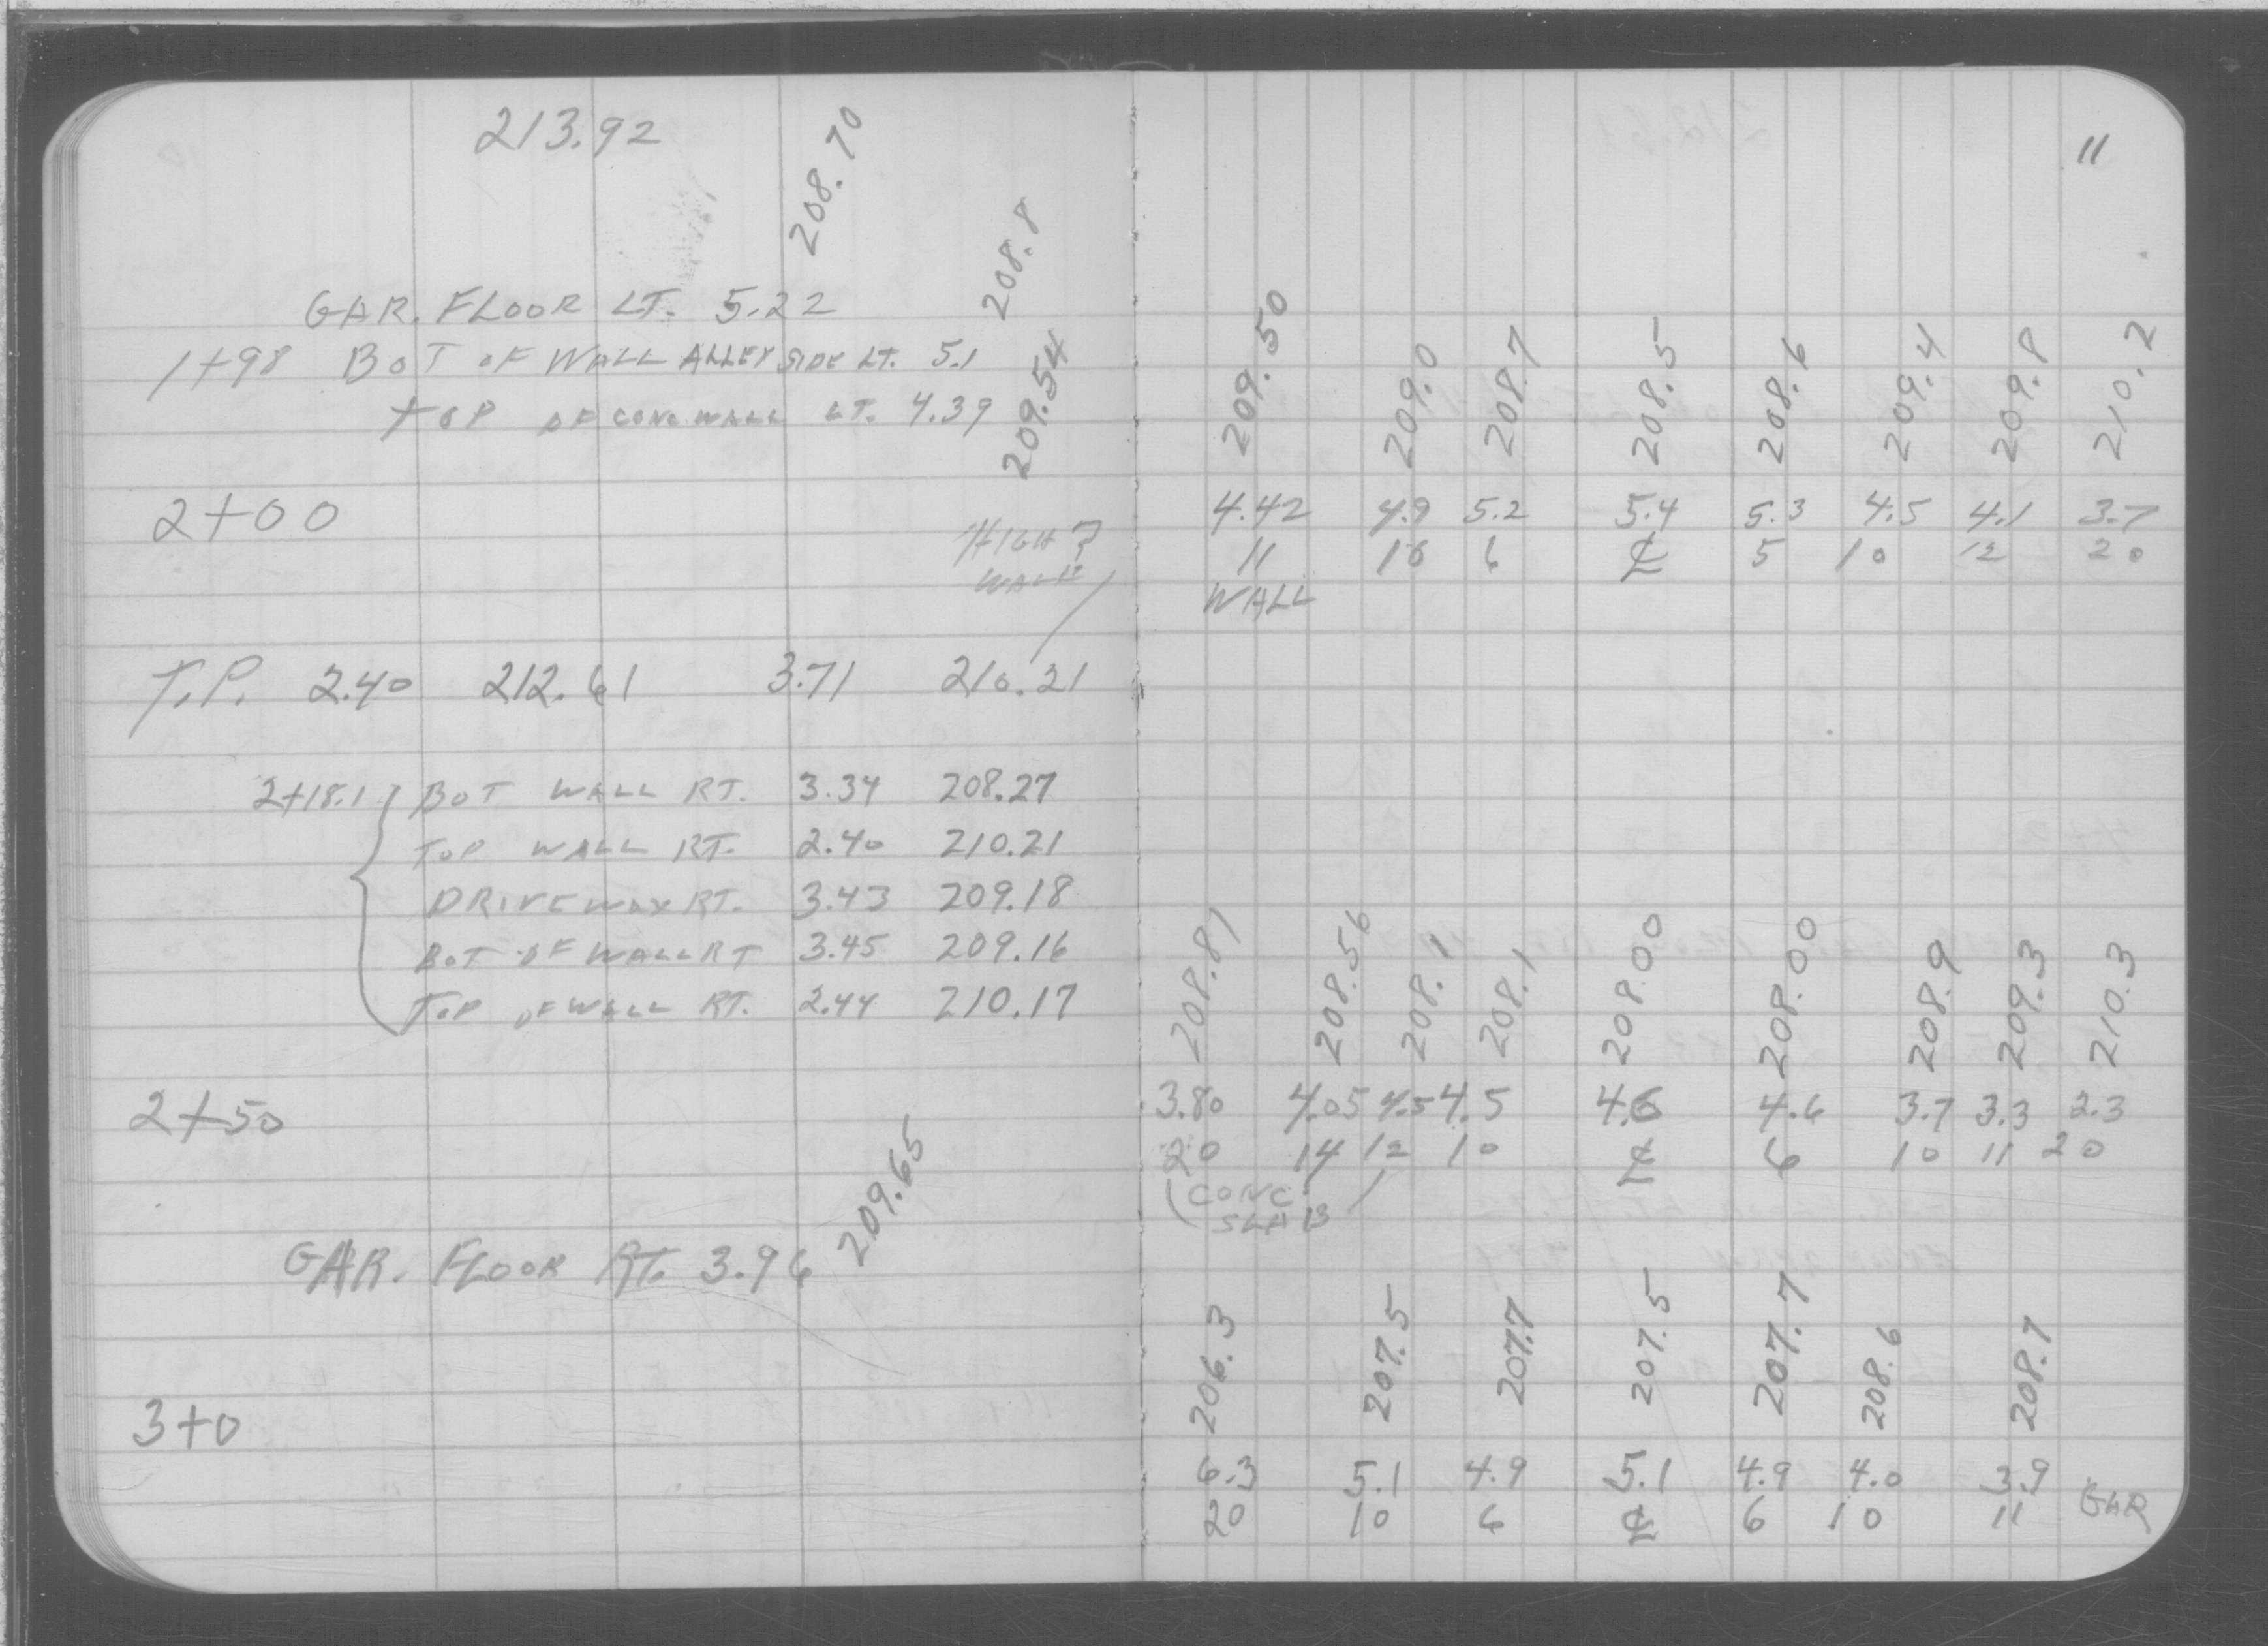 213.92
208.70
208.8
GAR. FLOOR LT. 5.22
1+98 BOT OF WALL ALLEY SIDE LT. 5.1
TOP OF CONC WALL LT. 4.39
209.54
2+00
HIGH
WALK
T.P. 2.40 212.61 3.71 210.21
2+18.1 BOT WALL RT. 3.34 208.27
TOP WALL RT. 2.40 210.21
DRIVEWAY RT. 3.43 209.18
BOT OF WALL RT 3.45 209.16
TOP OF WALL RT. 2.44 210.17
2+50
GAR. FLOOR RT. 3.96 209.65
3+0
11
209.50 209.0 208.7 208.5 208.6 209.4 209.8 210.2
4.42 4.9 5.2 5.4 5.3 4.5 4.1 3.7
11 10 6 ℄ 5 10 12 20
WALL
208.81 208.56 208.1 208.1 208.00 208.00 208.9 209.3 210.3
3.80 4.05 4.5 4.5 4.6 4.6 3.7 3.3 2.3
20 14 12 10 ℄ 6 10 11 20
(CONC.
SLAB
206.3 207.5 207.7 207.5 207.7 208.6 208.7
6.3 5.1 4.9 5.1 4.9 4.0 3.9
20 10 6 ℄ 6 10 11 GAR